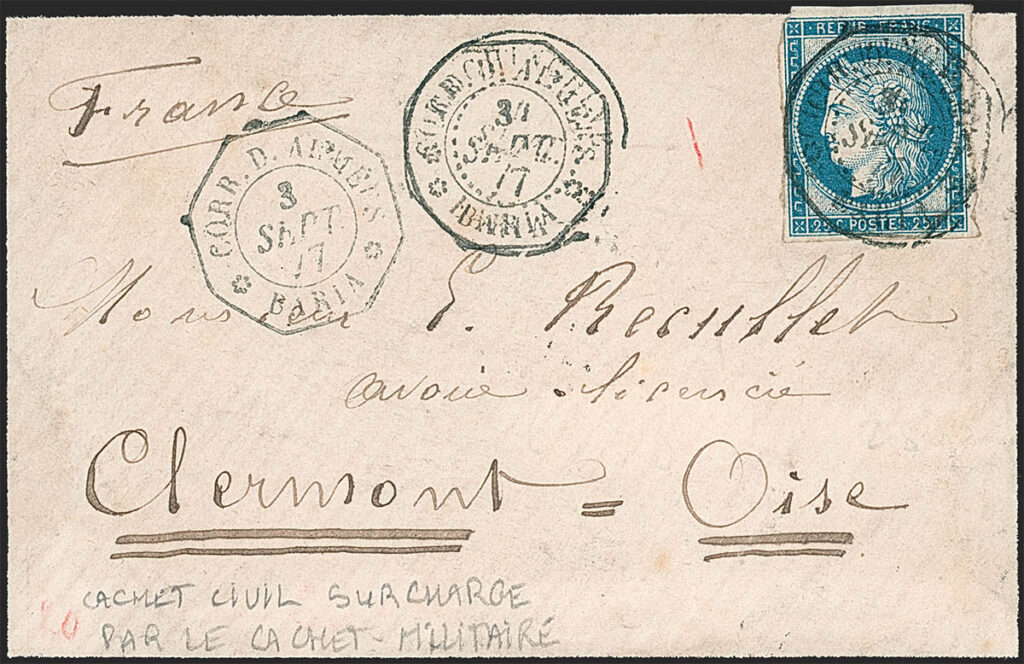 REPUB. FRANC.
25 C. POSTES 25 C.
France
CORR. D. ARMEES
3
SEPT.
77
BARIA
3
SEPT.
77
Monsieur E. Recullet
avoué licencié
Clermont = Oise
CACHET CIVIL SURCHARGE
PAR LE CACHET MILITAIRE